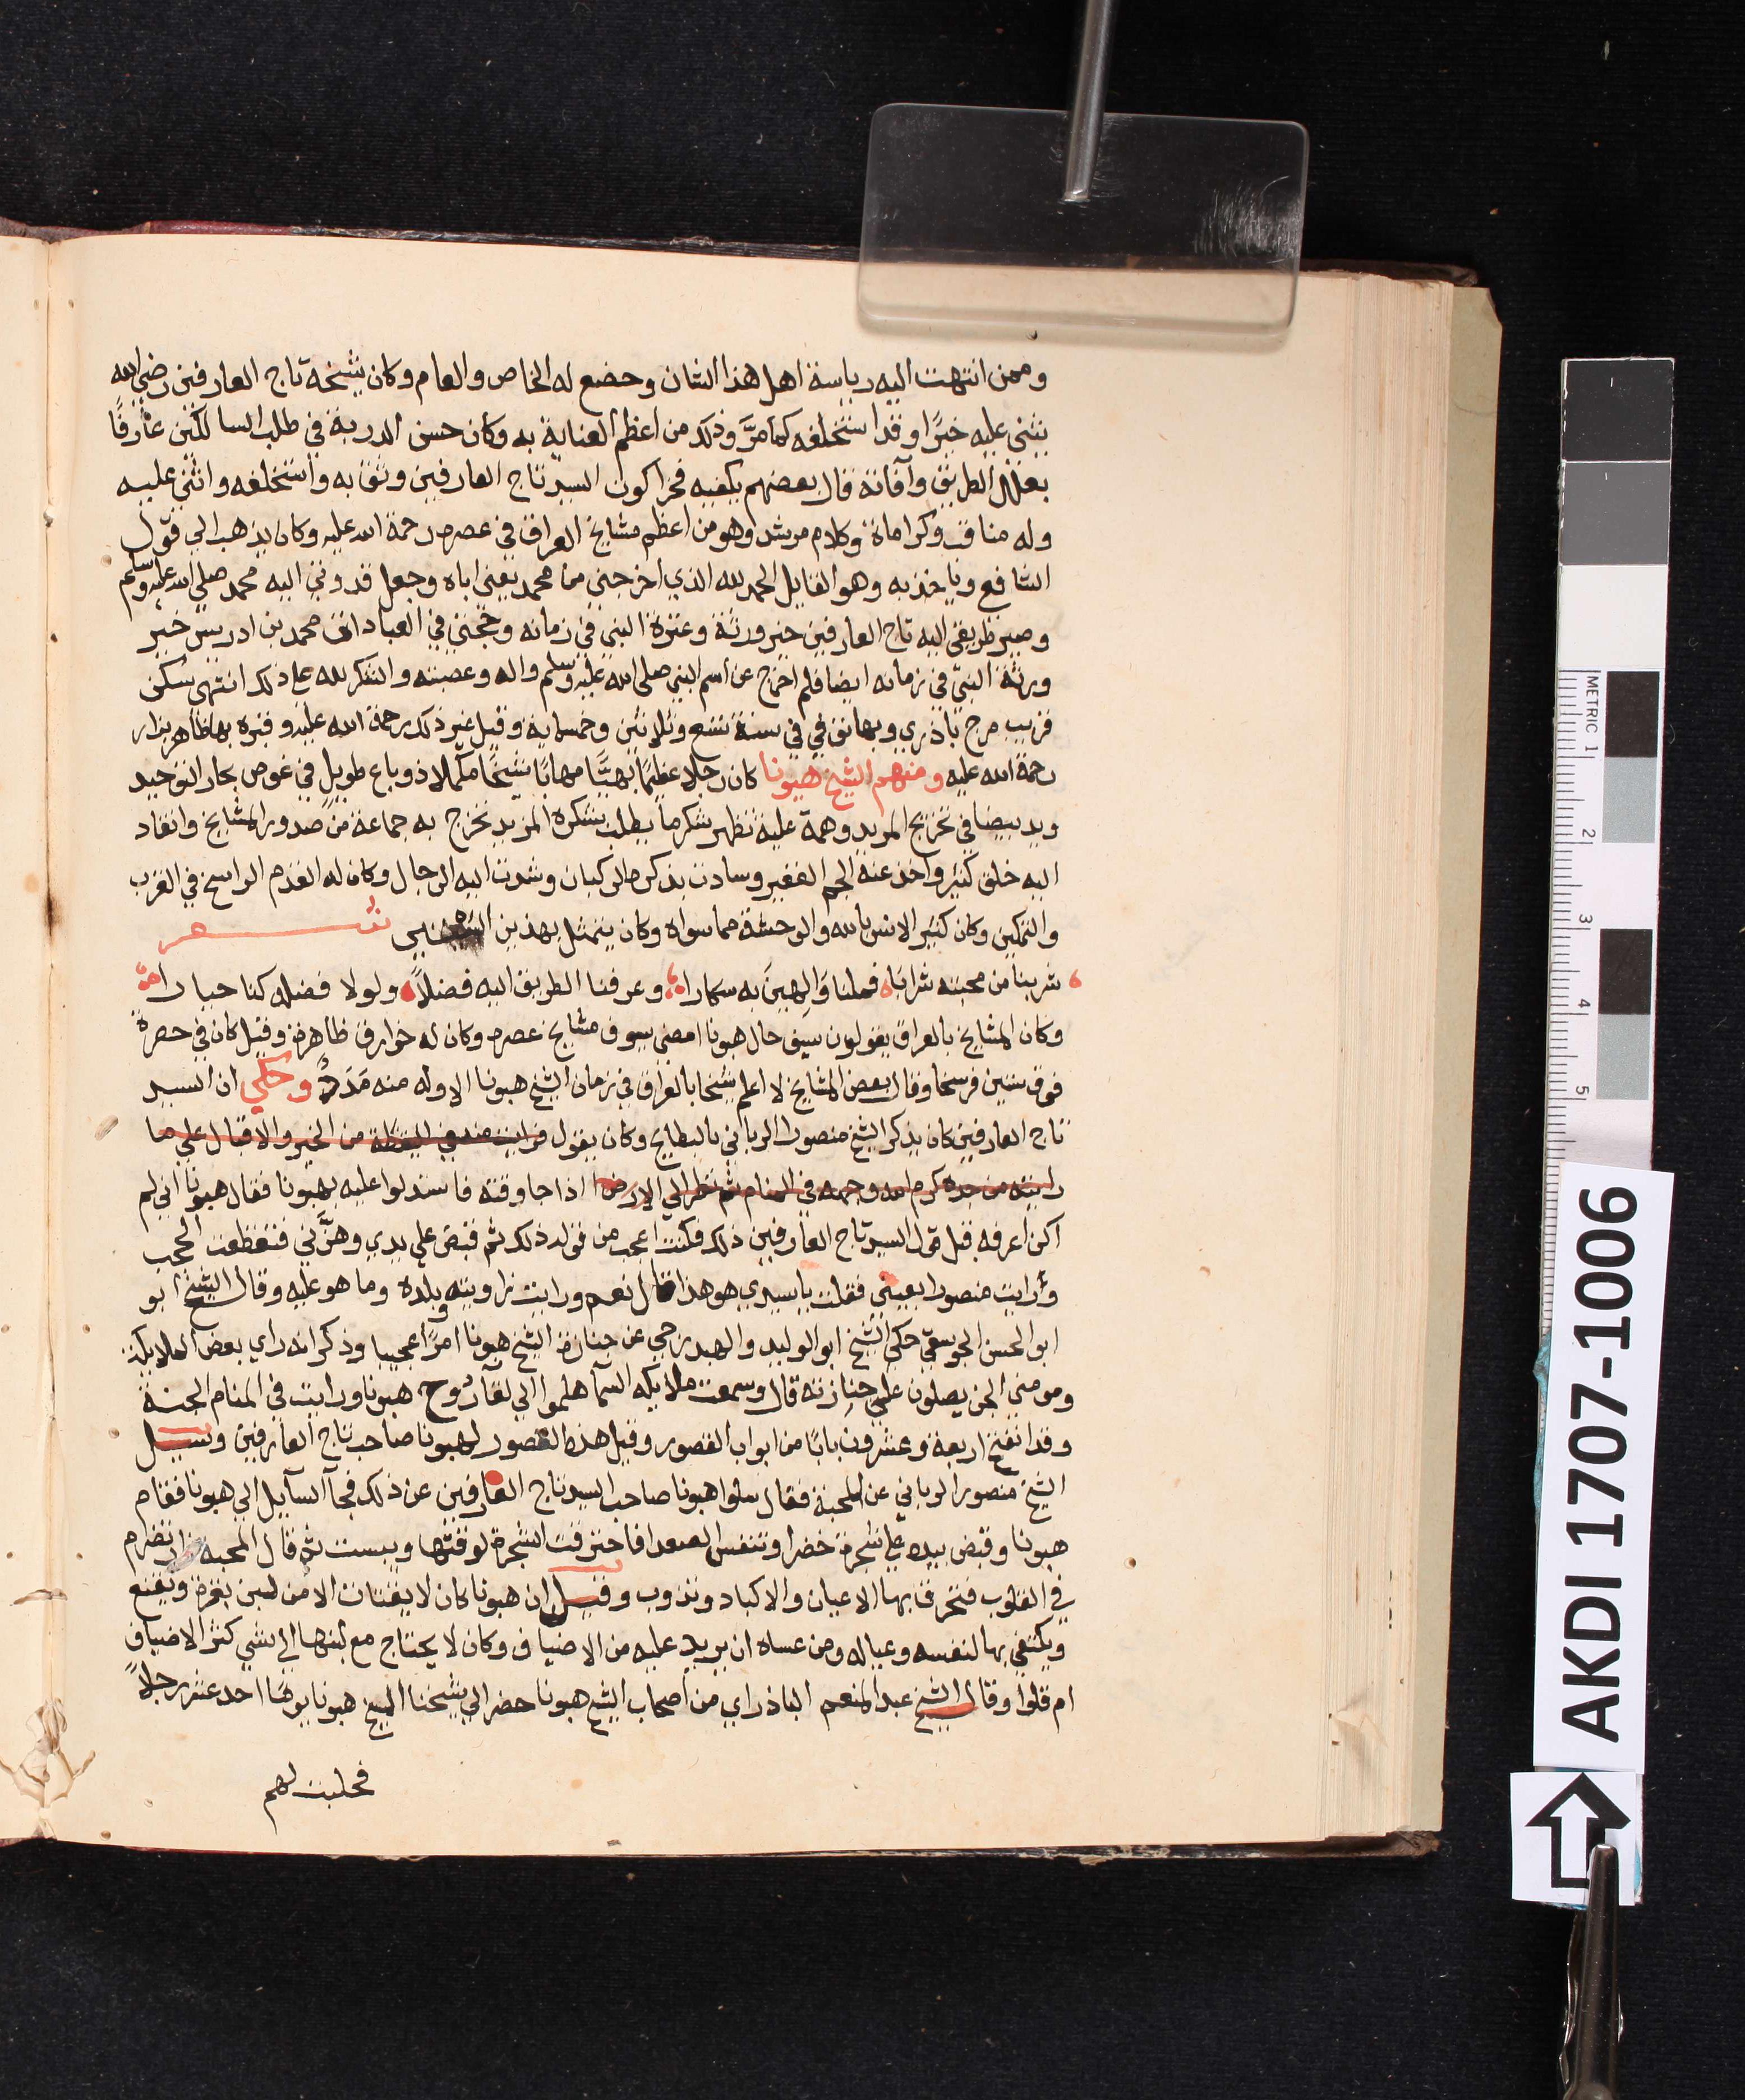 وممن انتهت اليه رياسة اهل هذا الشان وخضع له الخاص والعام وكان شيخه تاج العارفين رضي الله
يثني عليه خيرًا وقد استخلفه كما مرَّ وذلك من اعظم العناية به وكان حسن الدربة في طلب السالكين عارفًا
بعلل الطريق وآفاته قال بعضهم يكفيه فخرا كون السيد تاج العارفين وثق به واستخلفه واثني عليه
وله مناقب وكراماة وكلام مرشد وهو من اعظم مشايخ العراق في عصره رحمة الله عليه وكان يذهب الي قول
الشافع وياخذ به وهو القايل الحمد لله الذي اخرجني من محمد يعني اباه وجعل قدوتي اليه محمد صلي الله عليه وسلم
وصير طريقي اليه تاج العارفين خير ورثة وعترة النبي في زمانه وحجتي في العبادات محمد بن ادريس خير
ورثة النبي في زمانه ايضا فلم اخرج عن اسم النبي صلي الله عليه وسلم واله وعصبته والشكر لله علي ذلك انتهي سكن
قريب مرج باذري وبها توفي في سنة تسع وثلاثين وخمسماية وقيل غير ذلك رحمة الله عليه وقبره بها ظاهر يزار
رحمة الله عليه ومنهم الشيخ هبونا كان رجلا عظيمًا بهيًّا مهابًا شيخًا مكملا ذو باع طويل في غوص بحار التوحيد
ويد بيضا في تخريج المريد وهمة علية تظهر شكر ما يطلب بشكره المزيد تخرج به جماعة من صدور المشايخ وانقاد
اليه خلق كثير واخذ عنه الجم الغفير وسادت بذكره الركبان وشدت اليه الرجال وكان له القدم الراسخ في القرب
والتمكين وكان كثير الانس بالله والوحشة مما سواه وكان يتمثل بهذين شعر
شربنا من محبته شرابًا فملنا وَالِهينَ به سكارا وعرفنا الطريق اليه فضلاً ولولا فضله كنا حيارا
وكان المشايخ بالعراق يقولون سيف حال هبونا امضي سيوف مشايخ عصره وكان له خوارق ظاهرة وقيل كان في حصرة
فوق ستين فرسخا وقال بعض المشايخ لا اعلم شيخا بالعراق في زمان الشيخ هبونا الا وله منه مَدَدٌ وحكي ان السيد
تاج العارفين كان يذكر الشيخ منصورا الرباني بالبطايح وكان يقول فرايت منه في اليقظة من الخير والاقبال علي ما
رايته من جده كرم الله وجهه في المنام ثم نظر الي الارض اذا جا وقته فاستدلوا عليه بهبونا فقال هبونا اني لم
اكن اعرفه قبل قول السيد تاج العارفين ذلك فكنت اعجب من قوله ذلك ثم قبض علي يدي وهزَّني فتقطعت الحجب
ورايت منصورا بعيني فقلت ياسيدي هو هذا قال نعم ورايت زاويته وبلده وما هو عليه وقال الشيخ ابو
ابو الحسن الجوسقي حكي الشيخ ابو الوليد عن جنازة الشيخ هبونا امرًا عجيبا وذكر انه راي بعض الملايكة
ومومني الجن يصلون علي جنازته قال وسمعت ملايكه السمآ هلموا الي لقآ رُوح هبونا ورايت في المنام الجنة
وقد انفتح اربعة وعشرون بابًا من ابواب القصور وقيل هذه القصور لهبونا صاحب تاج العارفين وسيل
الشيخ منصور الرباني عن المحبة فقال سلوا هبونا صاحب السيد تاج العارفين عن ذلك فجآ السآيل الي هبونا فقام
هبونا وقبض بيده علي شجرة خضرا وتنفس الصعدا فاحترقت الشجرة لوقتها ويبست ثم قال المحبة نار تضرم
في القلوب فتحرق بها الاعيان والاكباد وتذوب وقيل ان هبونا كان لا يقتات الا من لبن بقرة ويقنع
ويكتفي بها لنفسه وعياله ومن عساه ان يريد عليه من الاضياف وكان لا يحتاج مع لبنها الي شي كثر الاضياف
ام قلوا وقال الشيخ عبد المنعم الباذراي من اصحاب الشيخ هبونا حضر الي شيخنا الشيخ هبونا يومًا احد عشر رجلاً
فحلبت لهم
AKDI 1707-1006
METRIC 1 2 3 4 5